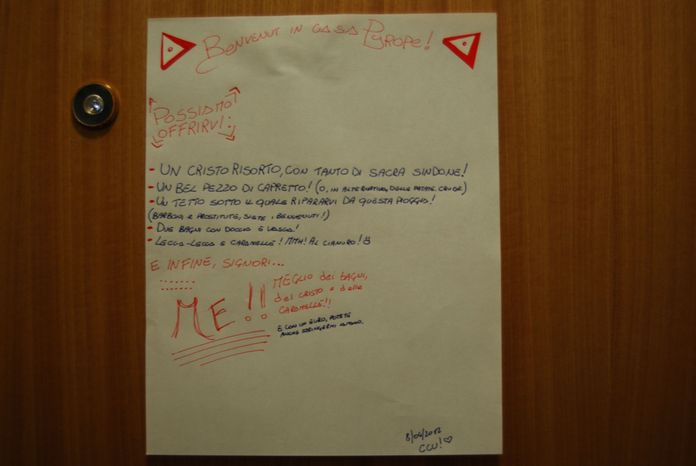 BENVENUTI IN CASA Pyrope!
POSSIAMO
OFFRIRVI:
- UN CRISTO RISORTO, CON TANTO DI SACRA SINDONE!
- UN BEL PEZZO DI CAPRETTO! (O, IN ALTERNATIVA, DELLE PATATE CRUDE)
- UN TETTO SOTTO IL QUALE RIPARARVI DA QUESTA PIOGGIA!
(BARBONI E PROSTITUTE, SIETE I BENVENUTI!)
- DUE BAGNI CON DOCCIA E VASCA!
- LECCA-LECCA E CARAMELLE! MMH! AL CIANURO!
E INFINE, SIGNORI...
ME!!
MEGLIO dei bagni,
del CRISTO e delle
CARAMELLE!!
E CON UN EURO, POTETE
ANCHE STRINGERMI LA MANO.
8/04/2012
CCU! ♡